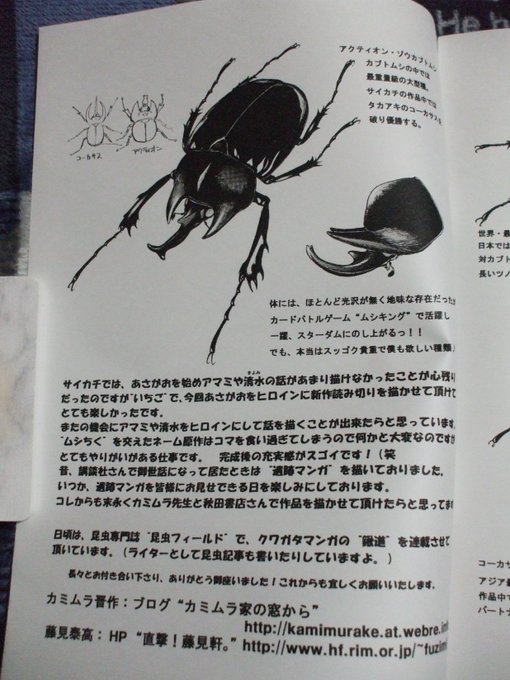 He h
アクティオン・ゾウカブトムシ
カブトムシの中では
最重量級の大型種。
サイカチの作品中では
タカアキのコーカサスを
破り優勝する。
コーカサス
アクティオン
世界・最
日本では
対カブト
長いツノ
体には、ほとんど光沢が無く地味な存在だったが
カードバトルゲーム“ムシキング”で活躍し
一躍、スターダムにのし上がるっ！！
でも、本当はスッゴク貴重で僕も欲しい種類
サイカチでは、あさがおを始めアマミや清水の話があまり描けなかったことが心残り
きよみ
だったのですが“いちご”で、今回あさがおをヒロインに新作読み切りを描かせて頂けて
とても楽しかったです。
またの機会にアマミや清水をヒロインにして話を描くことが出来たらと思っています。
“ムシちく”を交えたネーム原作はコマを食い過ぎてしまうので何かと大変なのですが
とてもやりがいがある仕事です。 完成後の充実感がスゴイです！（笑
昔、講談社さんで御世話になって居たときは“遺跡マンガ”を描いておりました。
いつか、遺跡マンガを皆様にお見せできる日を楽しみにしております。
コレからも末永くカミムラ先生と秋田書店さんで作品を描かせて頂けたらと思ってま
日頃は、昆虫専門誌“昆虫フィールド”で、クワガタマンガの“鍬道”を連載させて
頂いています。（ライターとして昆虫記事も書いたりしていますよ。）
長々とお付き合い下さり、ありがとう御座いました！これからも宜しくお願いいたします。
カミムラ晋作：ブログ“カミムラ家の窓から”
http://kamimurake.at.webre.inf
藤見泰高：HP “直撃！藤見軒。”http://www.hf.rim.or.jp/~fuzimi
コーカサ
アジア最
作品中で
パートナ